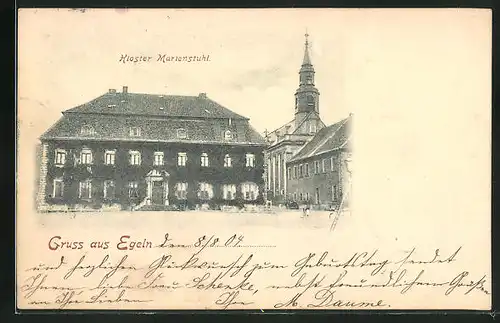 Kloster Marienstuhl.
Gruss aus Egeln den 8/8. 04.
und herzlichen Glückwunsch zum Geburtstag sendet
Ihnen liebe Frau Schenke, nebst freundlichen Grüßen
an Ihr Lieben Ihre M. Daume.